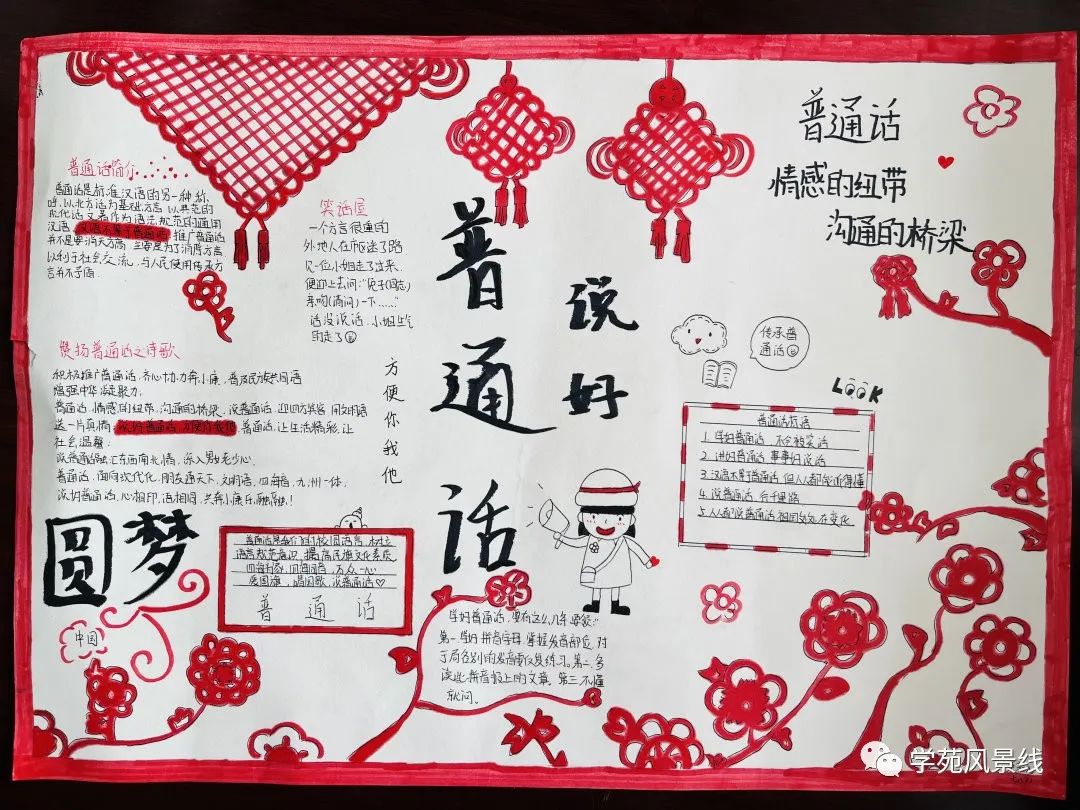 普通话
情感的纽带
沟通的桥梁
普通话简介
普通话是标准汉语的另一种称
呼,以北方话为基础方言,以典范的
现代话文著作为语法规范的通用
汉语,汉语不等于普通话,推广普通话
并不是要消灭方言,主要是为了消除方言
以利于社会交流,与人民使用传承方
言并不矛盾
笑话屋
一个方言很重的
外地人在市区迷了路
见一位小姐走了过来
便迎上去问:“兔子(同志)
亲吻(请问)一下……”
话没说话,小姐生气
的走了
说好
普通话
赞扬普通话之诗歌
积极推广普通话,齐心协力奔小康,普及民族共同语
增强中华凝聚力。
普通话,情感的纽带,沟通的桥梁,说普通话,迎四方宾客,用文明语
送一片真情;说好普通话,方便你我他,普通话,让生活精彩,让
社会温馨;
说普通话融汇东西南北情,深入男女老少心。
普通话,面向次代化,朋友遍天下,文明语,四海音,九州一体,
说好普通话,心相印,语相同,共奔小康乐融融!
方便你我他
传承普
通话
LOOK
普通话标语
1.学好普通话,不会被笑话
2.讲好普通话 事事好说话
3.汉语不等于普通话,但人人都能听得懂
4.说普通话,行千里路
5.人人都说普通话,祖国处处在变化
圆梦
中国
普通话是我们的校园语言,树立
语言规范意识,提高民族文化素质
四海为家,四海同音,万众一心
爱国旗,唱国歌,说普通话
普通话
学好普通话,要有这么几条要领:
第一,学好拼音字母,掌握发音部位,对
于局各别的发音要反复练习。第二,多
读些拼音报上的文章。第三,不懂
就问。
学苑风景线